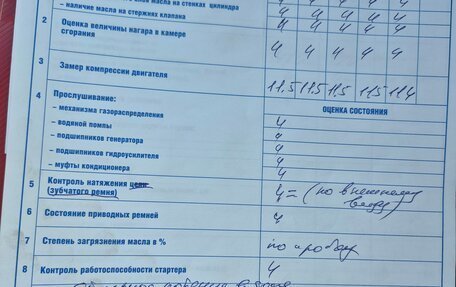 – наличие масла на стенках цилиндра
– наличие масла на стержнях клапана 4 4 4 4 4
2 Оценка величины нагара в камере 4 4 4 4 4
сгорания 4 4 4 4 4
3 Замер компрессии двигателя 11.5 11.5 11.5 11.5 11.4
4 Прослушивание: ОЦЕНКА СОСТОЯНИЯ
– механизма газораспределения 4
– водяной помпы 4
– подшипников генератора 4
– подшипников гидроусилителя 4
– муфты кондиционера 4
5 Контроль натяжения цепи 4= (по внешнему
(зубчатого ремня) виду)
6 Состояние приводных ремней 4
7 Степень загрязнения масла в % по пробегу
8 Контроль работоспособности стартера 4